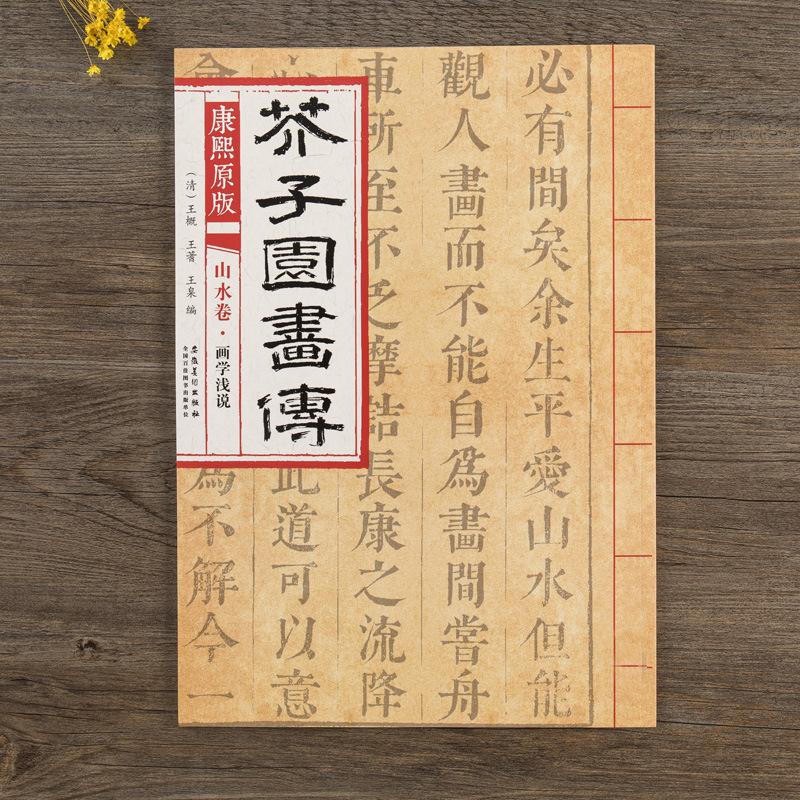 必有間矣余生平愛山水但能
觀人畫而不能自爲畫間嘗舟
車所至不乏摩詰長康之流降
此道可以意
會
爲不解今一
芥子園畫傳
康熙原版
山水卷·画学浅说
（清）王概 王蓍 王臬 编
安徽美术出版社
全国百佳图书出版单位